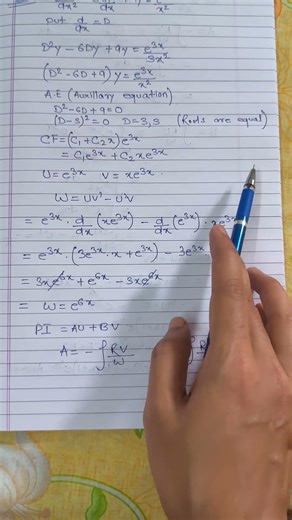 dx² dx x²
put d/dx = D
D²y - 6Dy + 9y = e^3x/3x²
(D² - 6D + 9) y = e^3x/x²
A.E (Auxillary equation)
D² - 6D + 9 = 0
(D-3)² = 0 D = 3,3 (Roots are equal)
CF = (C₁ + C₂x) e^3x
= C₁e^3x + C₂xe^3x
U = e^3x V = xe^3x.
W = UV' - U'V
= e^3x · d/dx (xe^3x) - d/dx (e^3x) · xe^3x
= e^3x · (3e^3x · x + e^3x) - 3e^3x
= 3xe^6x + e^6x - 3xe^6x
= W = e^6x
PI = AU + BV
A = - ∫ RV/W ∫ R